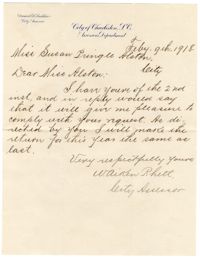 City of Charleston, S.C.
Assessor's Department
Feby. 9th. 1918
Miss Susan Pringle Alston,
City
Dear Miss Alston:
I have yours of the 2nd
inst, and in reply would say
that it will give me pleasure to
comply with your request. As di-
rected by you I will make the
return for this year the same as
last.
Very respectfully yours
City Assessor